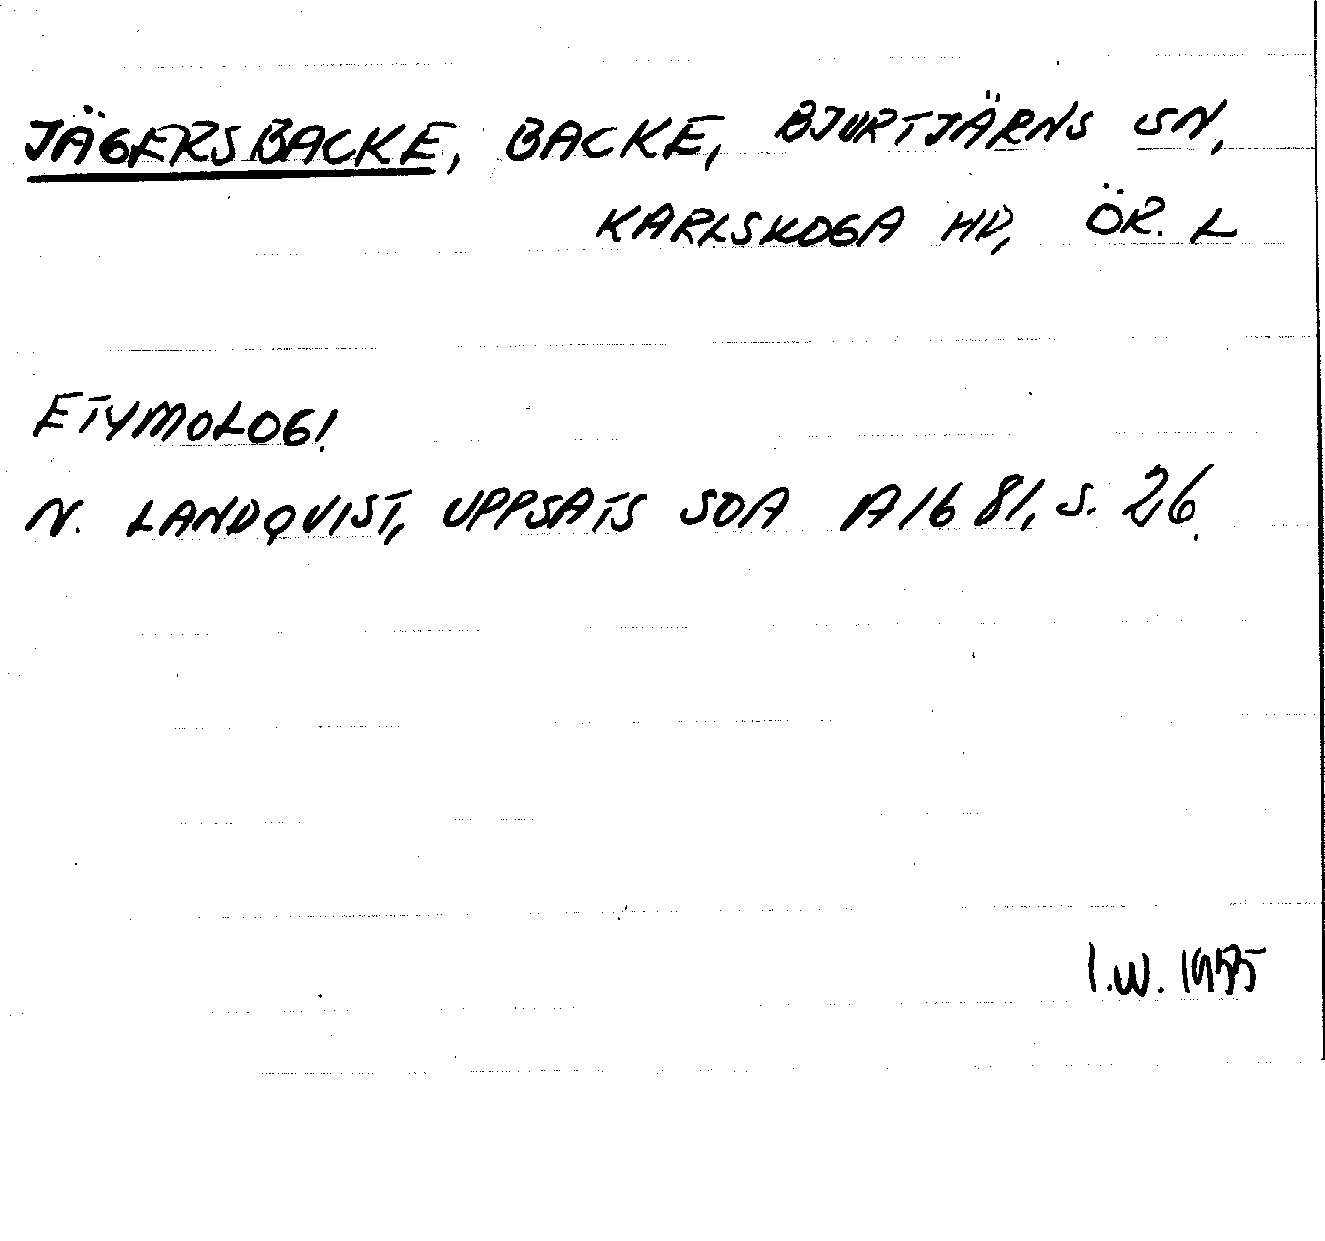 JÄGERSBACKE, BACKE, BJURTJÄRNS SN,
KARLSKOGA HD, ÖR. L
ETYMOLOGI
N. LANDQVIST, UPPSATS SOA A1681, S. 26.
I.W. 1955